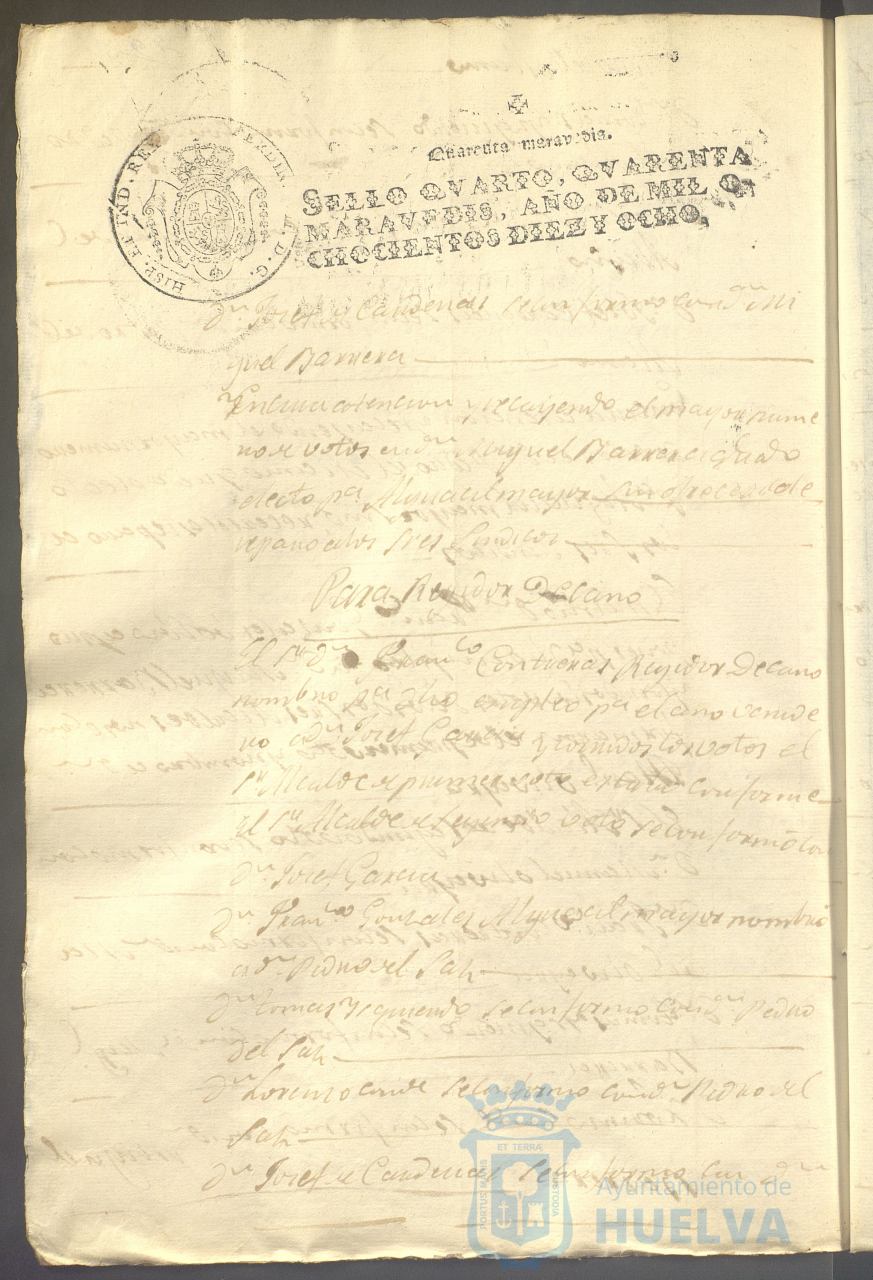 HISP. ET IND. REX
FERDIN. D. G.
Quarenta maravedis.
SELLO QVARTO, QVARENTA
MARAVEDIS, AÑO DE MIL O
CHOCIENTOS DIEZ Y OCHO.
Dn. Josef de Cardenas se conformo con dn. Mi
guel Barrera
En cuia atencion y recayendo el mayor nume
ro de votos en dn. Miguel Barrera quedo
electo pa. Alguacil mayor sin ofrecerse de
reparo a los Sres Sindicos
Para Regidor Decano
El Sr. Dn. Franco. Contreras Regidor Decano
nombro pa. dho empleo pa. el año venide
ro a dn. Josef Garcia y votos el
Sr. Alcalde de primer voto conforme
El Sr. Alcalde de segundo voto se conformó con
dn. Josef Garcia
Dn. Franco. Gonzales Alguacil mayor nombró
a dn. Pedro del Saz
Dn. Tomas Ysquierdo se conformo con dn. Pedro
del Saz
Dn. Lorenzo Conde se conformo con dn. Pedro del
Saz
Dn. Josef de Cardenas se conformo con dn.
ET TERRÆ
PORTUS MARIS
CUSTODIA
Ayuntamiento de
HUELVA